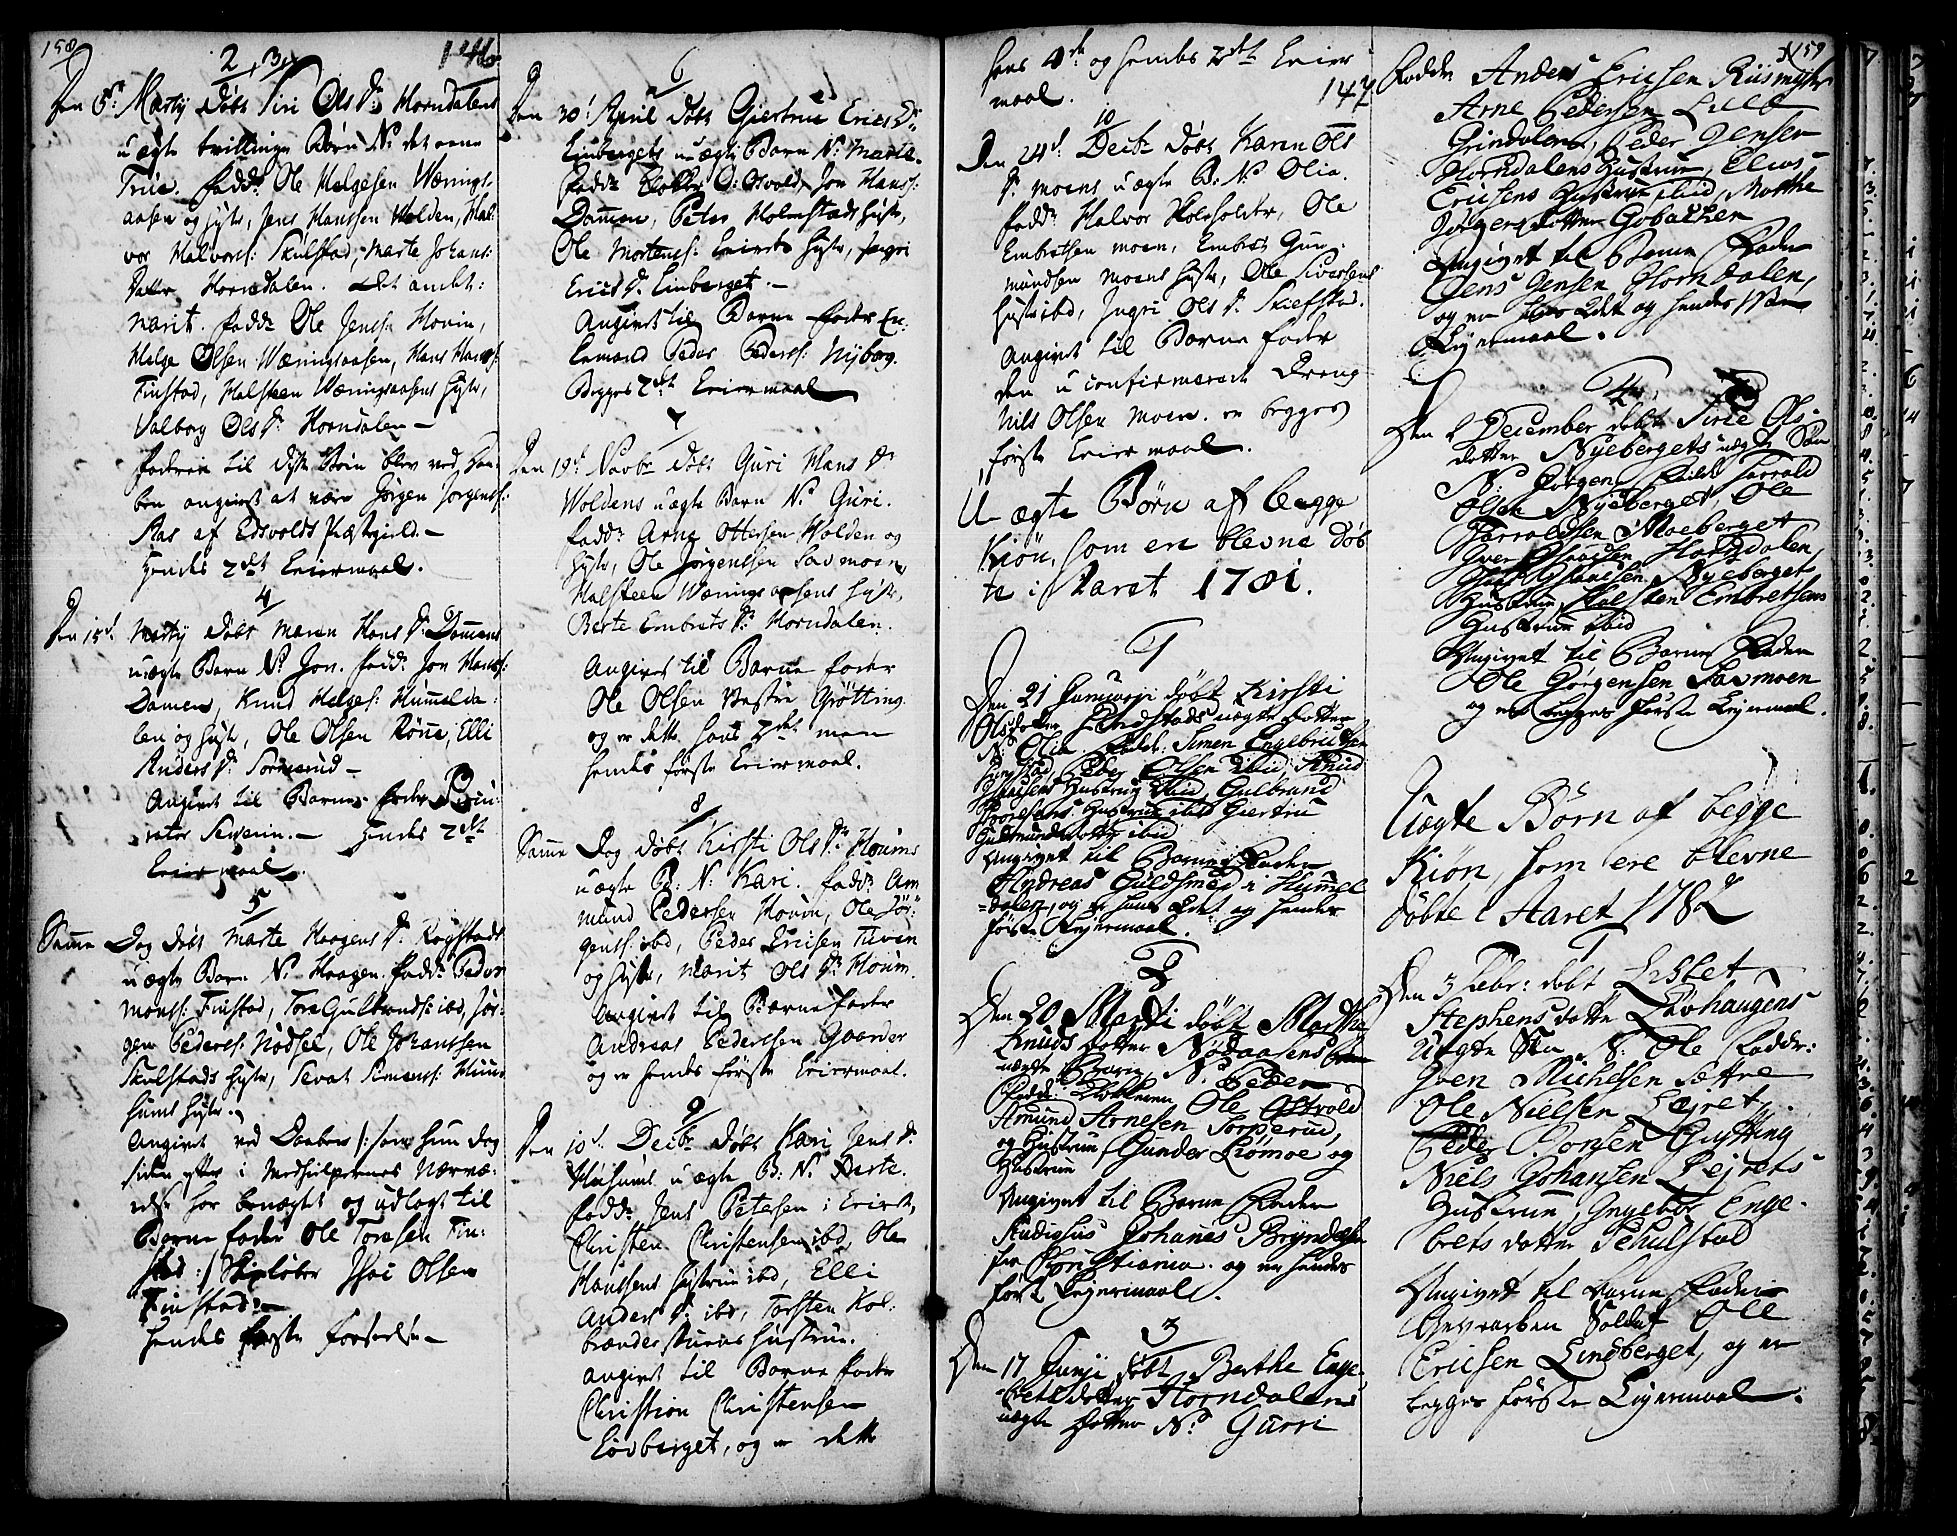 158
146
2, 3,
Den 5te Martij døbt Siri Ols Dr Horndalens
uægte tvillinge Børn No det eene
True. fadd: Ole Helgesen Wærings-
aasen og hustr, Jens Hanssen Holden, Hal-
vor Halvors: Skulstad, Marte Johans:
Datter Horndalen. Det andet:
Marit. fadd: Ole Jenss: Hovin,
Helge Olsen Wæringsaasen, Hans Hans:
Finstad, Halsteen Wæringsaasens hustr,
Valborg Ols Dr Horndalen —
faderen til disse Børn blev ved Daa-
ben angivet at være Jørgen Jørgenss:
Aas af Edsvolds Præstegield. —
Hendes 2det Leiermaal.
4
Den 15de Martij døbt Maren Hans Dr Dammens
uægte Barn No Jon. fadd: Jon Hans:
Dammen, Knud Helges: Hummelda-
len og hustr, Ole Olsen Rønne, Elli
Anders Dr Sørnerud —
Angivet til Barne fader
Severin. — Hendes 2det
Leiermaal.
5
Samme Dag døbt Marte Haagens Dr Rogstads
uægte Barn No Haagen. fadd: Peder
Monss: Finstad, Tore Gulbrands: ibd, Jør-
gen Pederss: Nødsel, Ole Johanssen
Skulstads hustr, Sevat Simens:
hustr.
Angivet ved Daaben /: som hun dog
siden efter i Medhielpernes Nærvæ-
relse har benægtet og udlagt til
Barne fader Ole Toresen Fin-
stad :/ Skieløber Olsen
Finstad: —
Hendes første forseelse —
6
Den 30te April døbt Giertrue Erics Dr
Linbergets uægte Barn No Marte.
fadd: Klokker O: Osvold, Jon Hanss:
Dammen, Peter Holmstads hustr,
Ole Mortenss: Leirets hustr, Ingri
Erics Dr Linberget. —
Angivet til Barne fader En-
kemand Peder Pederss: Nyborg.
Begges 2det Leiermaal
7
Den 19de Novbr døbt Guri Hans Dr
Woldens uægte Barn No Guri.
fadd: Arne Ottersen Wolden og
hustr, Ole Jørgensen Savmoen,
Halsteen Wæringsaasens hustr,
Berte Embrets Dr Horndalen.
Angivet til Barne fader
Ole Olsen Vestre Grøtting
og er dette hans 2det men
hendes første Leiermaal.
8
Samme Dag døbt Kirsti Ols Dr Houms
uægte B: N: Kari. fadd: Am
mund Pedersen Hovin, Ole Jør-
genss: ibd, Peder Ericsen Tuven
og hustr, Marit Ols Dr Houm.
Angivet til Barne fader
Andreas Pedersen Gaarder
og er hendes første Leiermaal.
9
Den 10de Decbr døbt Kari Jens Dr
Husums uægte B: No Berte.
fadd: Jens Petersen i Leiret,
Christen Christensen ibd, Ole
Hanssens hustrue ibd, Elli
Anders Dr ibd, Torsten Kol-
brænderstuens hustrue.
angivet til Barne fader
Christian Christensen
Løvberget, og er dette
hans 4de og hendes 2det Leier
maal.
147
10
Den 24de Decbr døbt Karen Ols
Dr Moens uægte B: No Olia.
fadd: Halvor Skoleholder, Ole
Embretsen Moen, Embret Gun-
mundsen Moens hustr, Ole Siversens
hustr ibd, Ingri Ols Dr Skiefstad.
Angivet til Barne fader
den u confirmerede Dreng
Nils Olsen Moen. er begges
første Leiermaal.
U-ægte Børn af begge
Kiøn, som ere blevne døb
te i Aaret 1781.
1
Den 21 Januarii døbt Kirsti
Olsdatter Fendstads uægte Datter
N: Olia. Fadd: Simen Engebrictsen
Finstad, Peder Olsen ibid, Knud
Hansens Hustrue ibid, Gulbrand
Thoresens Hustrue ibid, Giertru
Gudmunds datter ibid
Angivet til Barne Fader
Andreas Guldsmed i Hummel
-dalen, og er hans 2det og hendes
første Leyermaal.
2
Den 20 Marti døbt Marthe
Knuds Datter Nødaasens
uægte Barn N: Peder
Fadd: Klokkeren Ole Ostvold
Amund Arnesen Sorperud,
og Hustrue, Gunder Liømoe og
Hustrue
Angivet til Barne Fader
Studiosus Johannes Bryndelsen
fra Christiania. og er hendes
første Leyermaal.
3
Den 17 Junji døbt Berthe Enge-
brets datter Horndalens
uægte Datter No Gurri
159
Fadder Anders Ericsen Riismyhr
Arne Pedersen Lille
Grindalen, Peder Jensen
Horndalens Hustrue, Elias
Ericsens Hustrue ibid, Marthe
Jørgens Datter Gobakken
Angivet til Barne Fader
Jens Jensen Horndalen,
og er hans 2det og hendes 1ste
Leyermaal.
4
Den 2 December døbt Sirie Ols-
datter Nyebergets uægte Søn
N: Jørgen, Fadd: Tarrald
Olsen Nyeberget, Ole
Tarraldsen Moeberget
Iver Horndalen,
Hans Hansen Nyeberget
Hustrue, Halsten Embretsens
Hustrue ibid
Angivet til Barne Fader
Ole Jørgensen Savmoen
og er begges første Leyermaal.
Uægte Børn af begge
Kiøn, som ere blevne
døbte i Aaret 1782
1
Den 3 Febr: døbt Lisbet
Stephens datter Løvhaugens
Uægte Søn N: Ole Faddr:
Sven Michelsen Sættre
Ole Nielsen Leyret,
Peder Jonsen Grøtting
Niels Johansen Leyrets
Hustrue, Ingebor Enge-
brets datter Schulstad
Angivet til Barne Fader
Gevorben Soldat Ole
Ericsen Lindberget, og er
begges første Leyermaal.